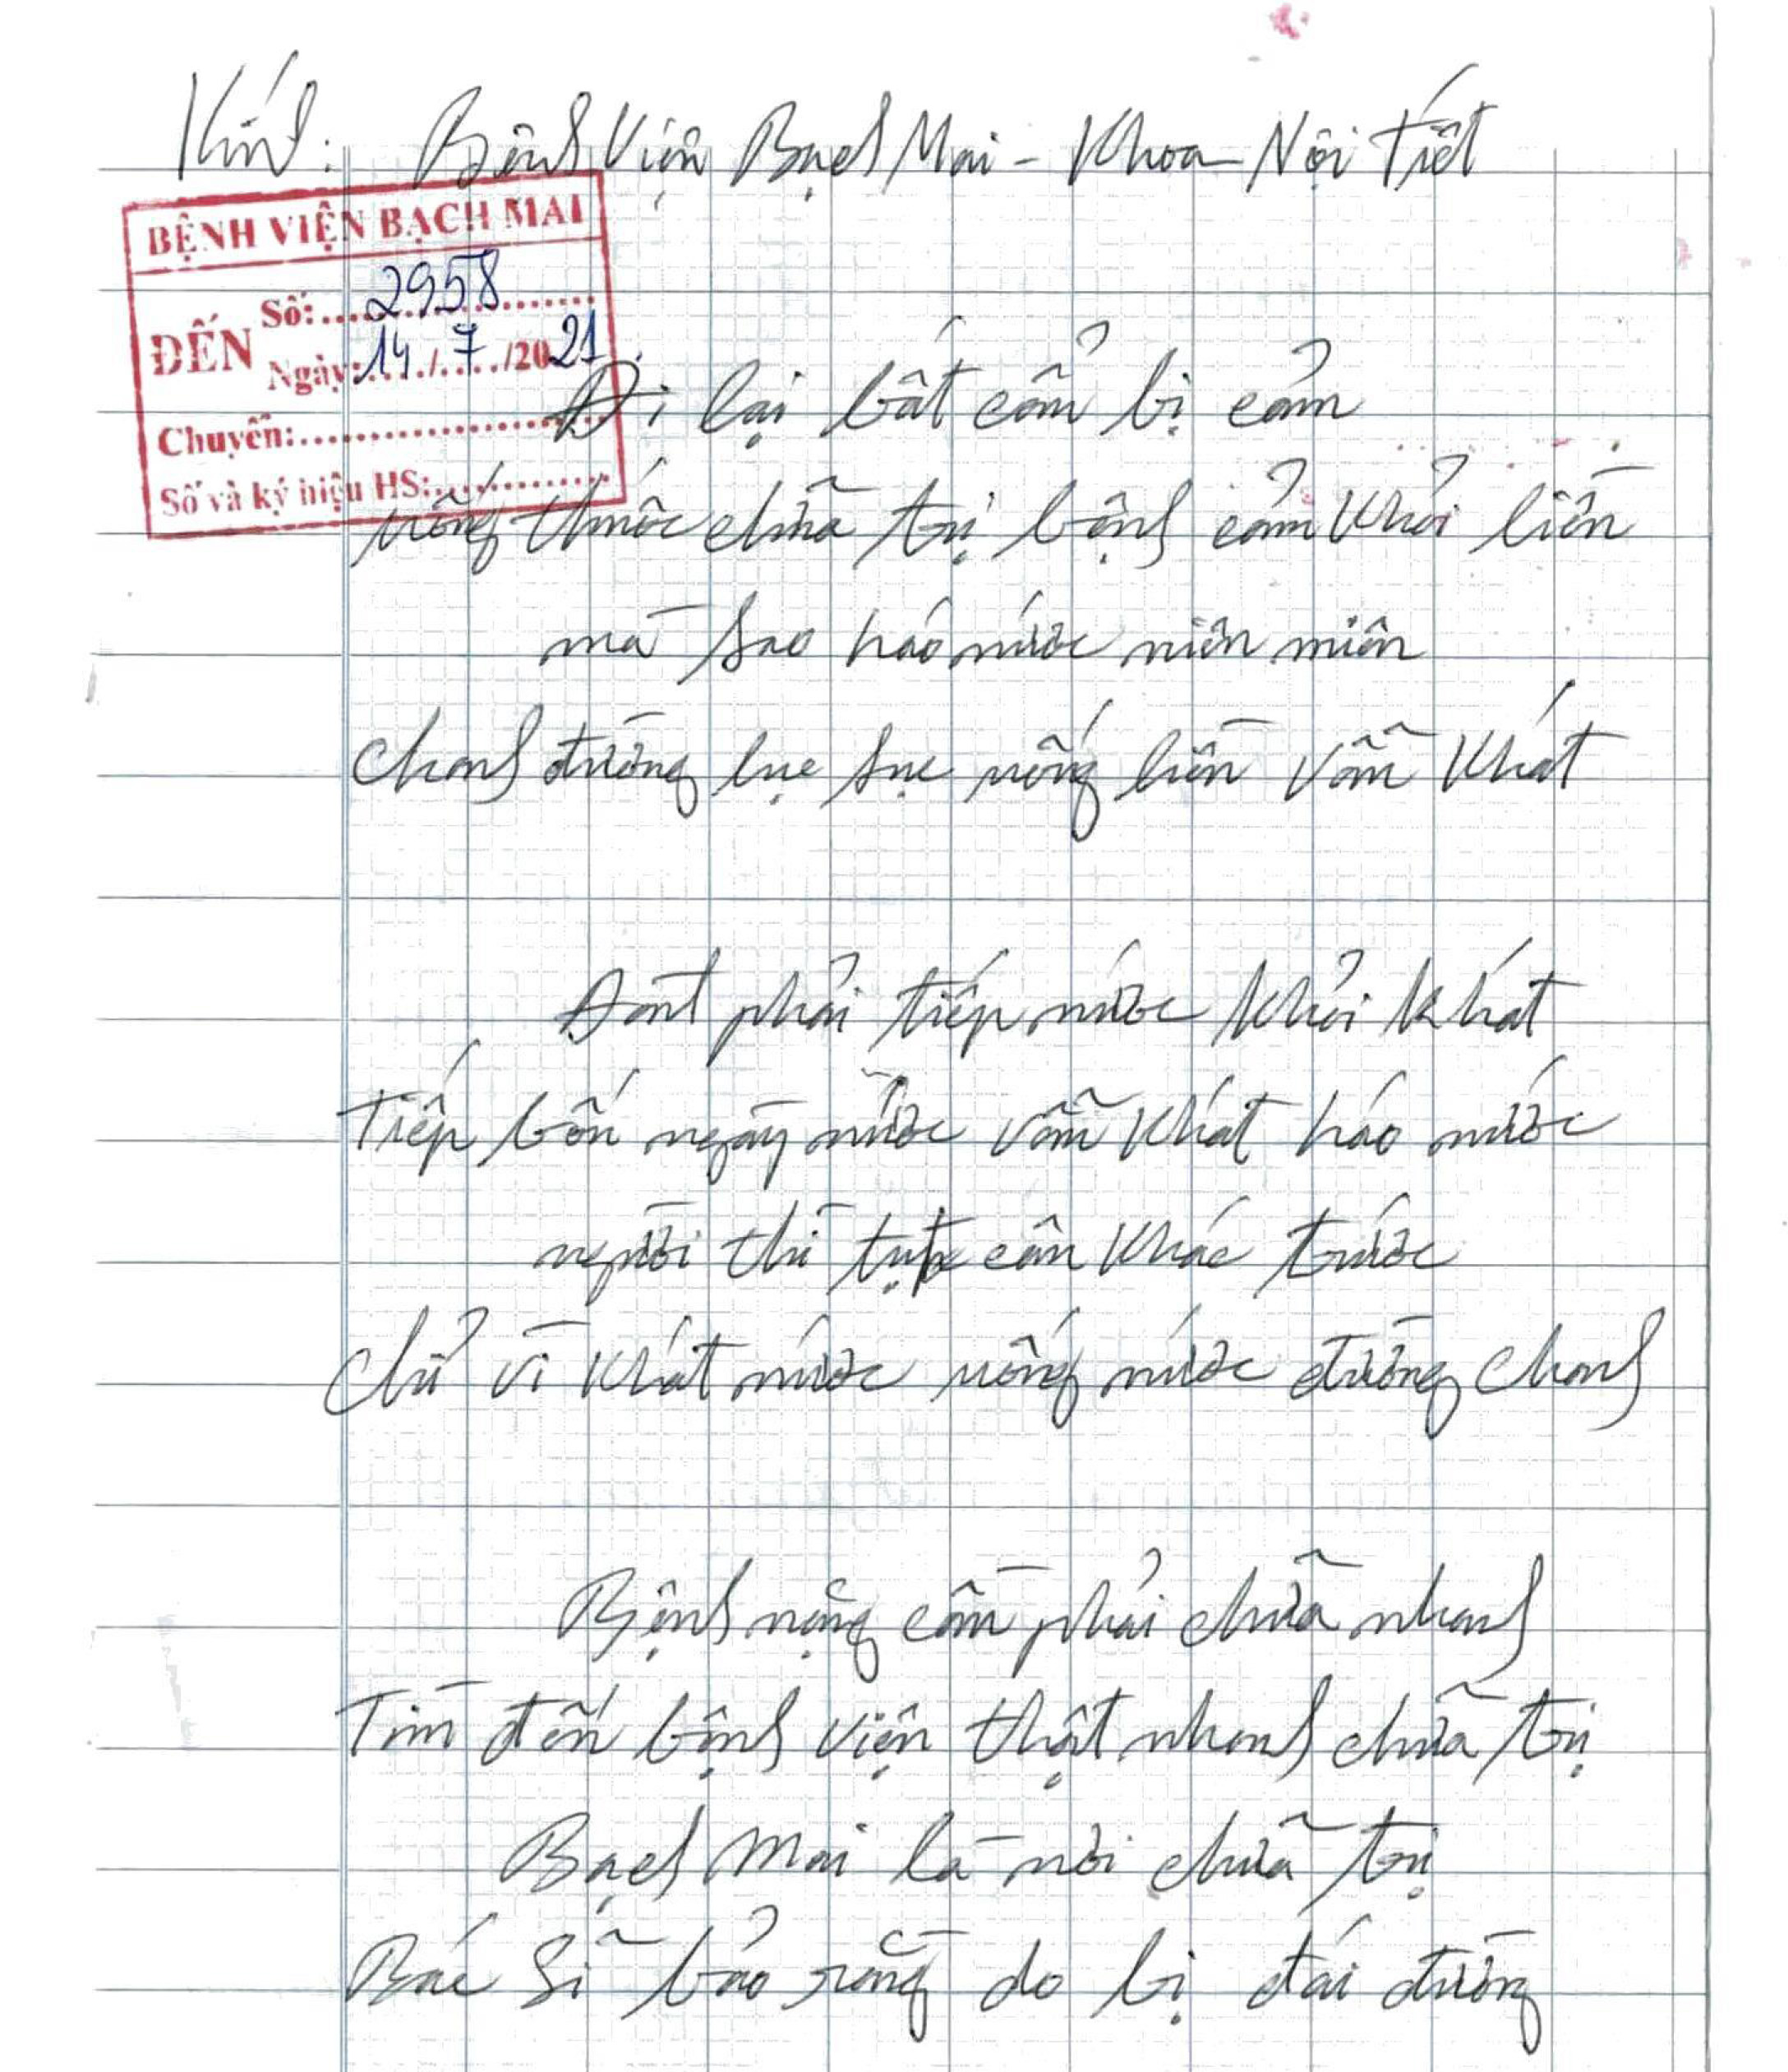 Kính: Bệnh Viện Bạch Mai - Khoa Nội Tiết
BỆNH VIỆN BẠCH MAI
ĐẾN
Số: 2958
Ngày: 14/7/2021
Chuyển:
Số và ký hiệu HS:
Đi lại bất cẩn bị cảm
uống thuốc chữa trị bệnh cảm khỏi liền
mà sao háo nước miên miên
chanh đường lục sục uống liền vẫn khát
Đành phải tiếp nước khỏi khát
Tiếp bốn ngày nước vẫn khát háo nước
người thì tụt cân khác trước
chỉ vì khát nước uống nước đường chanh
Bệnh nặng cần phải chữa nhanh
Tìm đến bệnh viện thật nhanh chữa trị
Bạch Mai là nơi chữa trị
Bác sĩ bảo rằng do bị đái đường